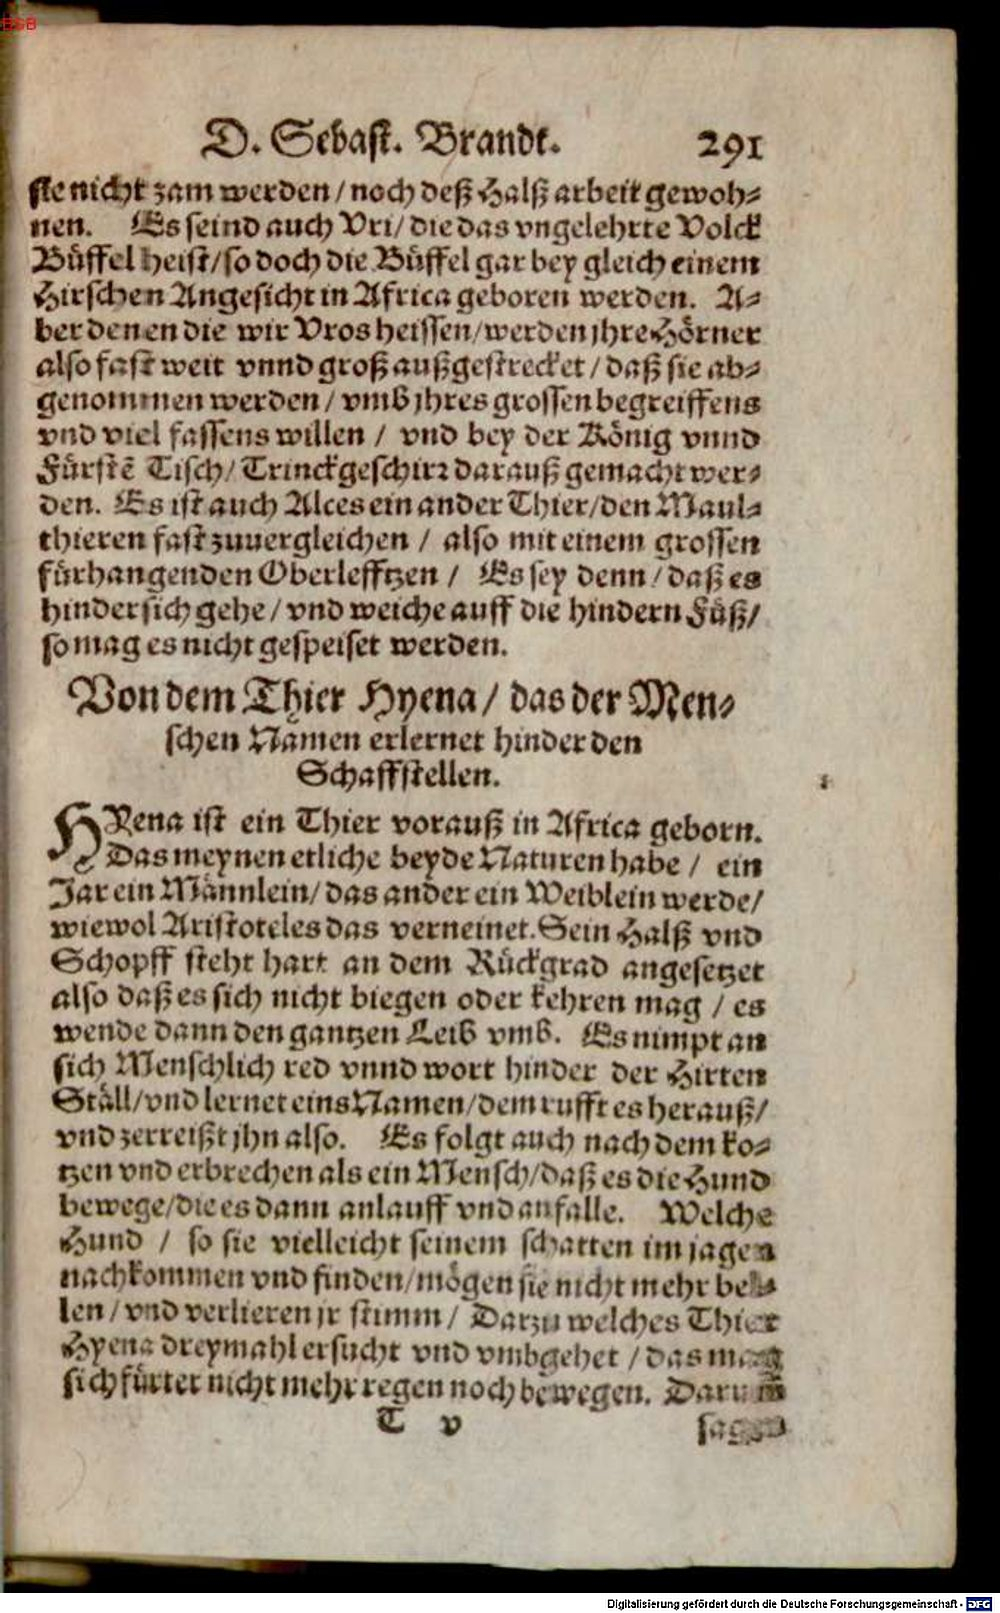 BSB
D. Sebast. Brandt. 291
sie nicht zam werden / noch deß Halß arbeit gewoh-
nen. Es seind auch Vri / die das vngelehrte Volck
Büffel heist / so doch die Büffel gar bey gleich einem
Hirschen Angesicht in Africa geboren werden. A-
ber denen die wir Vros heissen / werden jhre Hörner
also fast weit vnnd groß außgestrecket / daß sie ab-
genommen werden / vmb jhres grossen begreiffens
vnd viel fassens willen / vnd bey der König vnnd
Fürstẽ Tisch / Trinckgeschirr darauß gemacht wer-
den. Es ist auch Alces ein ander Thier / den Maul-
thieren fast zuuergleichen / also mit einem grossen
fürhangenden Oberlefftzen / Es sey denn / daß es
hindersich gehe / vnd weiche auff die hindern Füß /
so mag es nicht gespeiset werden.
Von dem Thier Hyena / das der Men-
schen Namen erlernet hinder den
Schaffstellen.
HYena ist ein Thier vorauß in Africa geborn.
Das meynen etliche beyde Naturen habe / ein
Jar ein Männlein / das ander ein Weiblein werde /
wiewol Aristoteles das verneinet. Sein Halß vnd
Schopff steht hart an dem Rückgrad angesetzet
also daß es sich nicht biegen oder kehren mag / es
wende dann den gantzen Leib vmb. Es nimpt an
sich Menschlich red vnnd wort hinder der Hirten
Ställ / vnd lernet eins Namen / dem rufft es herauß /
vnd zerreißt jhn also. Es folgt auch nach dem ko-
tzen vnd erbrechen als ein Mensch / daß es die Hund
bewege / die es dann anlauff vnd anfalle. Welche
Hund / so sie vielleicht seinem schatten im jagen
nachkommen vnd finden / mögen sie nicht mehr bel-
len / vnd verlieren jr stimm / Darzu welches Thier
Hyena dreymahl ersucht vnd vmbgehet / das mag
sich fürter nicht mehr regen noch bewegen. Darumb
T v sagen
Digitalisierung gefördert durch die Deutsche Forschungsgemeinschaft - DFG